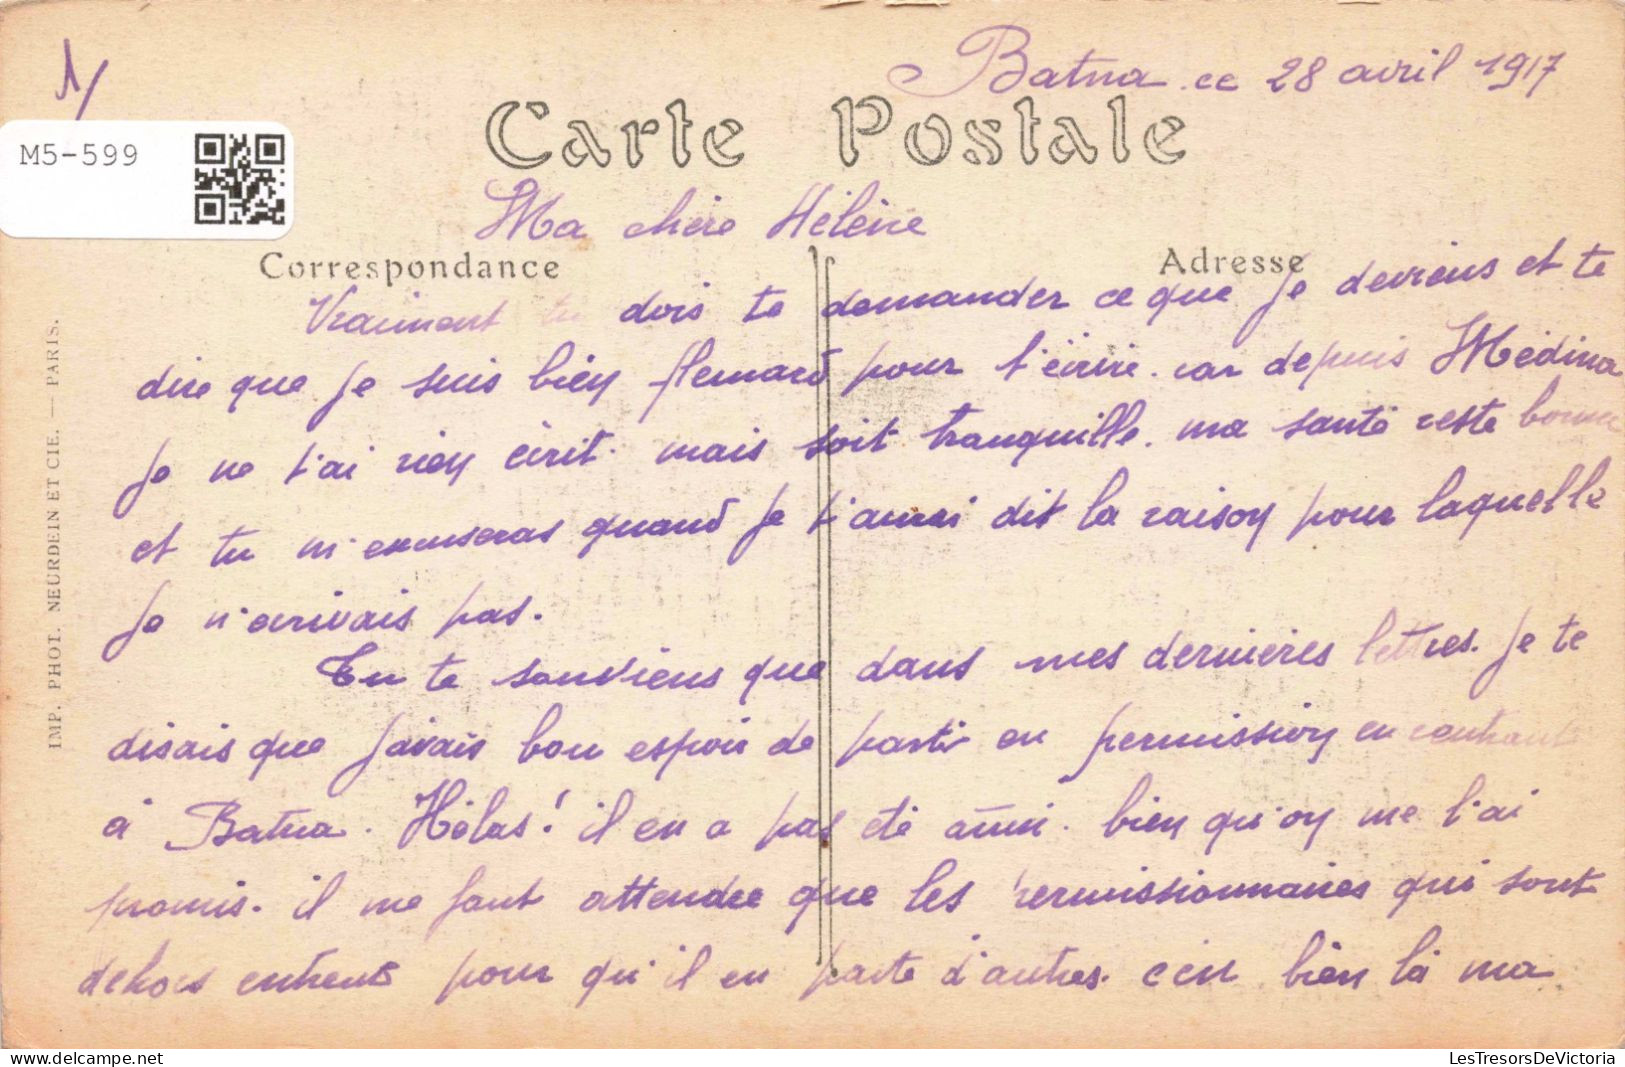 1/
Batna ce 28 avril 1917
M5-599
Carte Postale
Ma chère Hélène
Correspondance
Adresse
Vraiment tu dois te demander ce que je deviens et te
dire que je suis bien flemard pour t'écrire. car depuis Médina
je ne t'ai rien écrit. mais soit tranquille. ma santé reste bonne
et tu m'excuseras quand je t'aurai dit la raison pour laquelle
je n'ecrivais pas.
Tu te souviens que dans mes dernieres lettres. je te
disais que j'avais bon espoir de partir en permission en rentrant
à Batna. Hélas! il en a pas été ainsi. bien qu'on me l'ai
promis. il me faut attendre que les permissionnaires qui sont
dehors entrent pour qu'il en parte d'autres. c'en bien là ma
IMP. PHOT. NEURDEIN ET CIE. — PARIS.
delcampe.net
LesTresorsDeVictoria